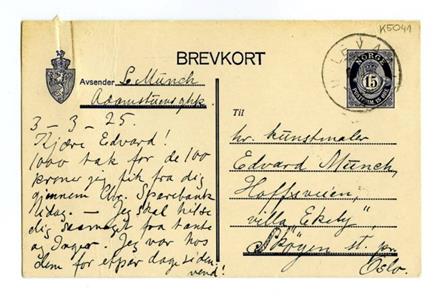 K5041
BREVKORT
NORGE
15
Avsender L Munch
Adamstuensgpk.
3-3-25.
Kjære Edvard!
1000 tak for de 100
kroner jeg fik fra dig
gjennem Akg. Sparebank
idag. — Jeg skal hilse
dig saameget fra tante
og Inger. Jeg var hos
dem for et par dage siden
vend!
Til
hr. kunstmaler
Edvard Munch,
Hoffsveien,
villa "Ekely"
Skøyen st. pr.
Oslo.